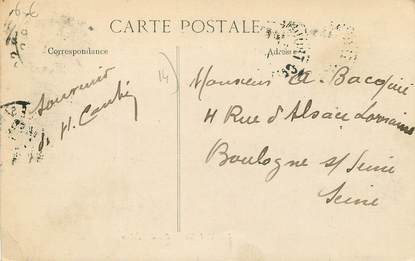 CARTE POSTALE
Correspondance
Adresse
14)
Souvenir
de H.
Monsieur A. Bacquié
4 Rue d'Alsace Lorraine
Boulogne s/ Seine
Seine